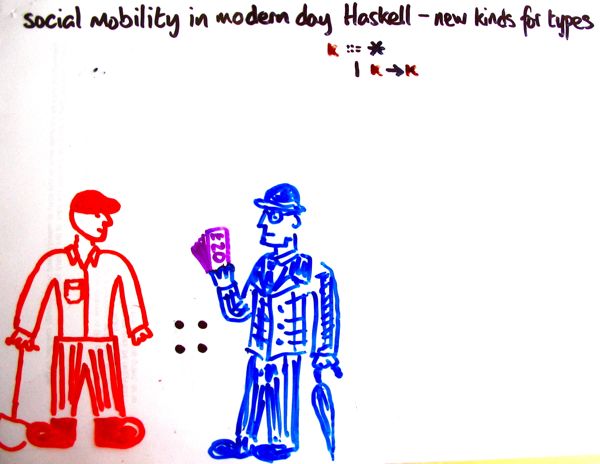 social mobility in modern day Haskell - new kinds for types
κ ::= *
| κ → κ
£20
::